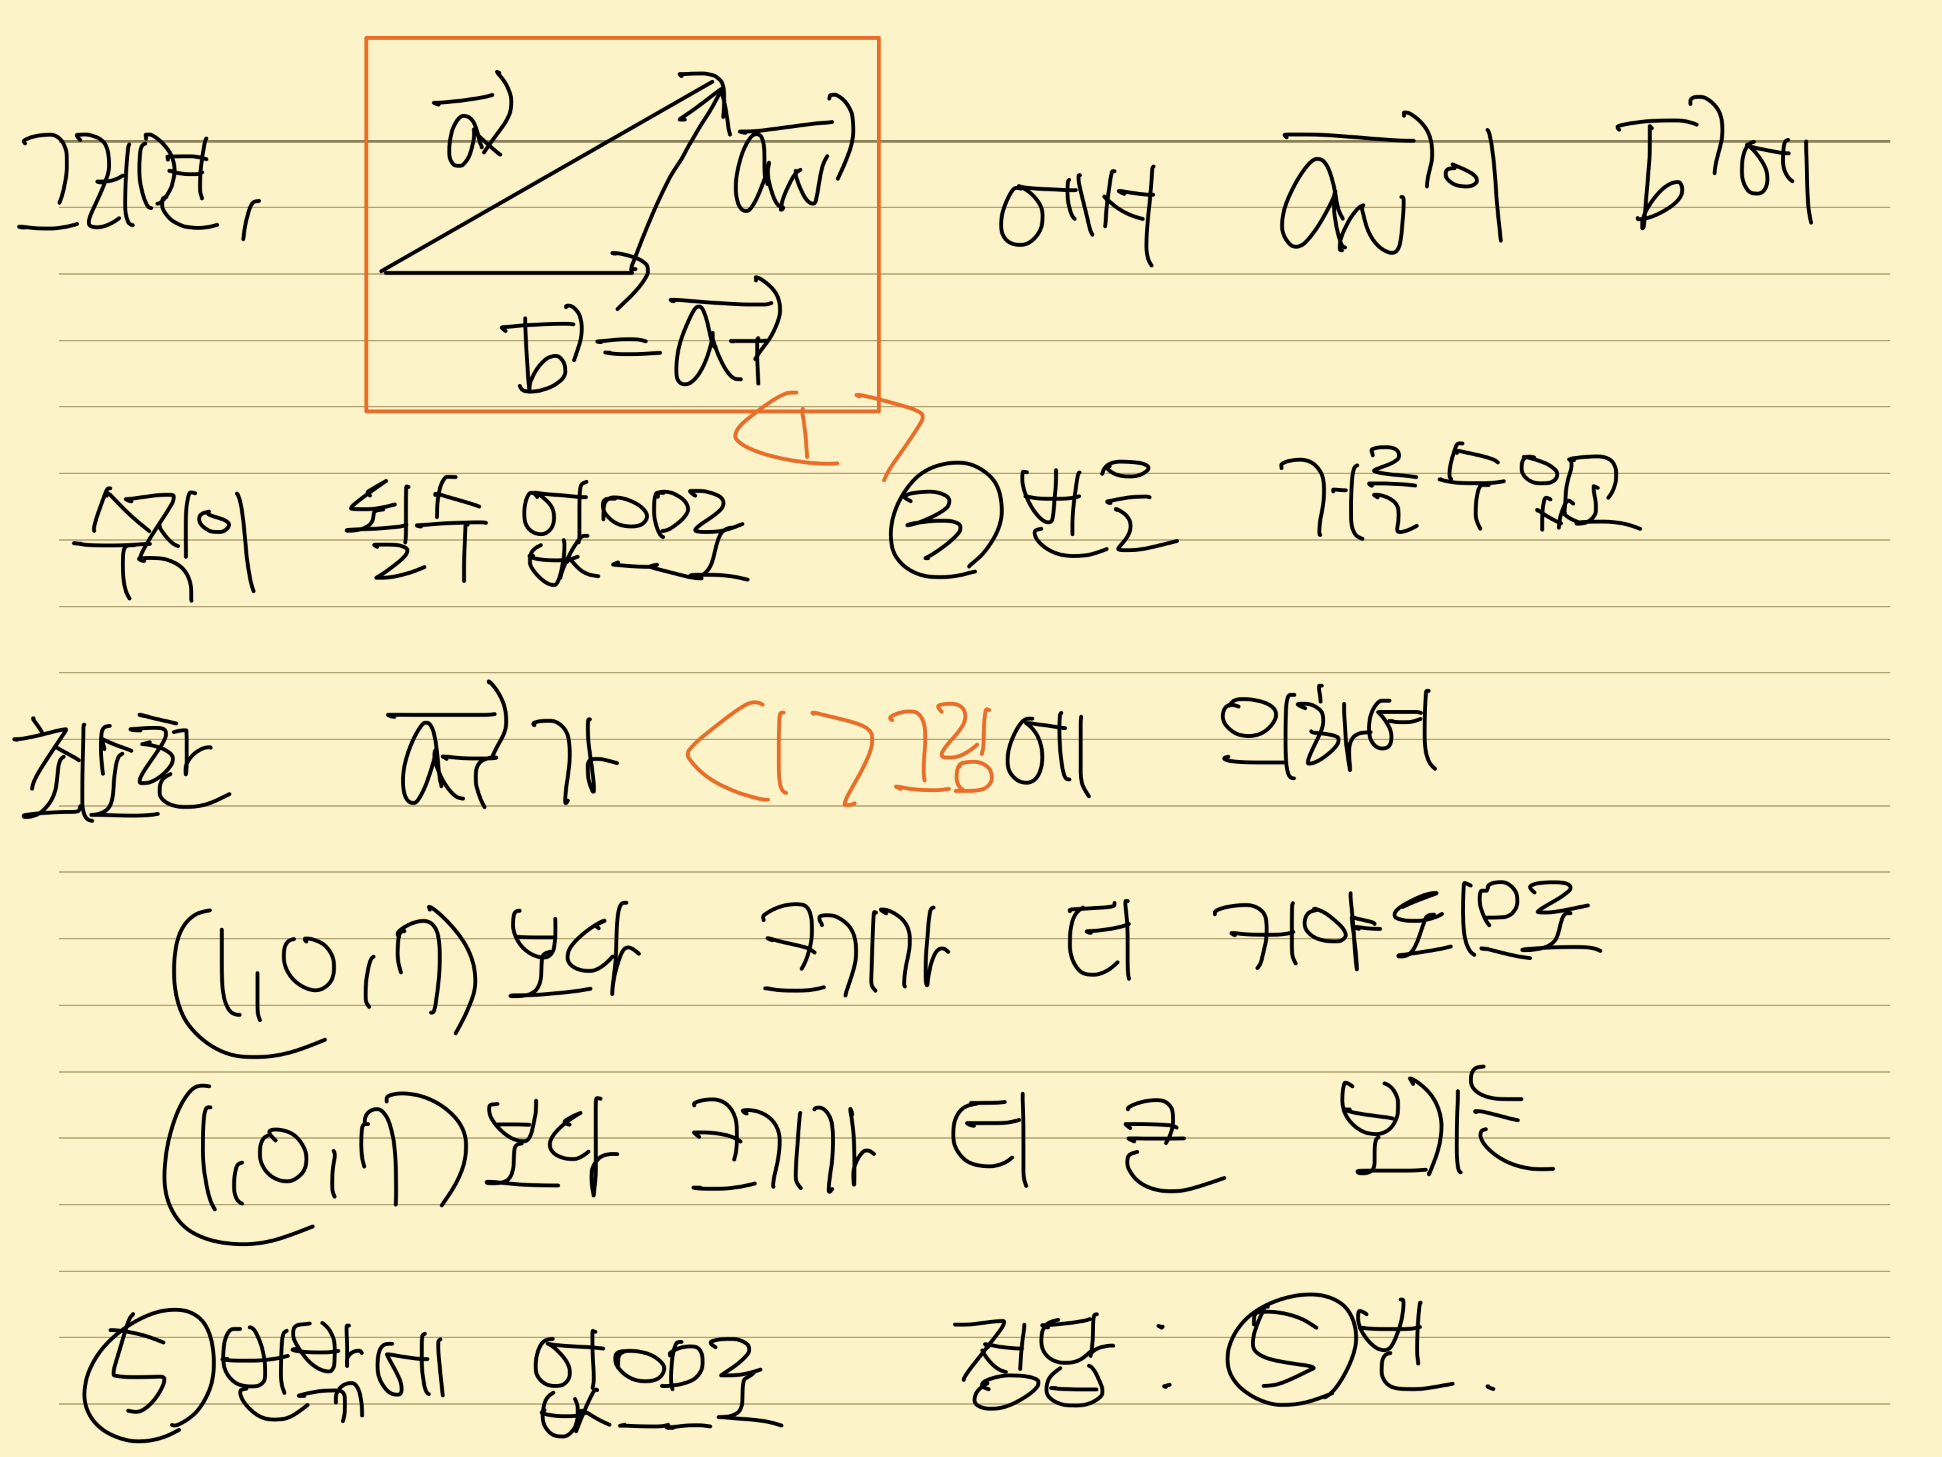 그러면, a⃗ a⃗w 에서 a⃗w이 b⃗에
b⃗ = a⃗r
<1>
수직이 될수 없으므로 ③번은 거를 수 있고
최소한 a⃗r가 <1>그림에 의하여
(1,0,7)보다 크기가 더 커야 되므로
(1,0,7)보다 크기가 더 큰 보기는
⑤번밖에 없으므로 정답 : ⑤번.